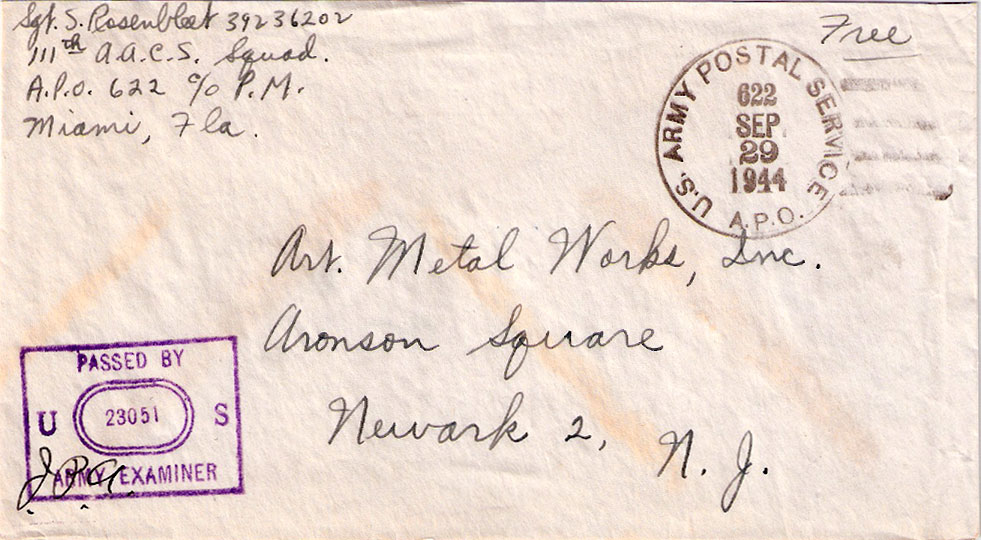 Sgt. S. Rosenblatt 39236202
111th A.A.C.S. Squad.
A.P.O. 622 c/o P.M.
Miami, Fla.
Free
U.S. ARMY POSTAL SERVICE
622
SEP
29
1944
A.P.O.
Art. Metal Works, Inc.
Aronson Square
Newark 2, N. J.
PASSED BY
U 23051 S
ARMY EXAMINER